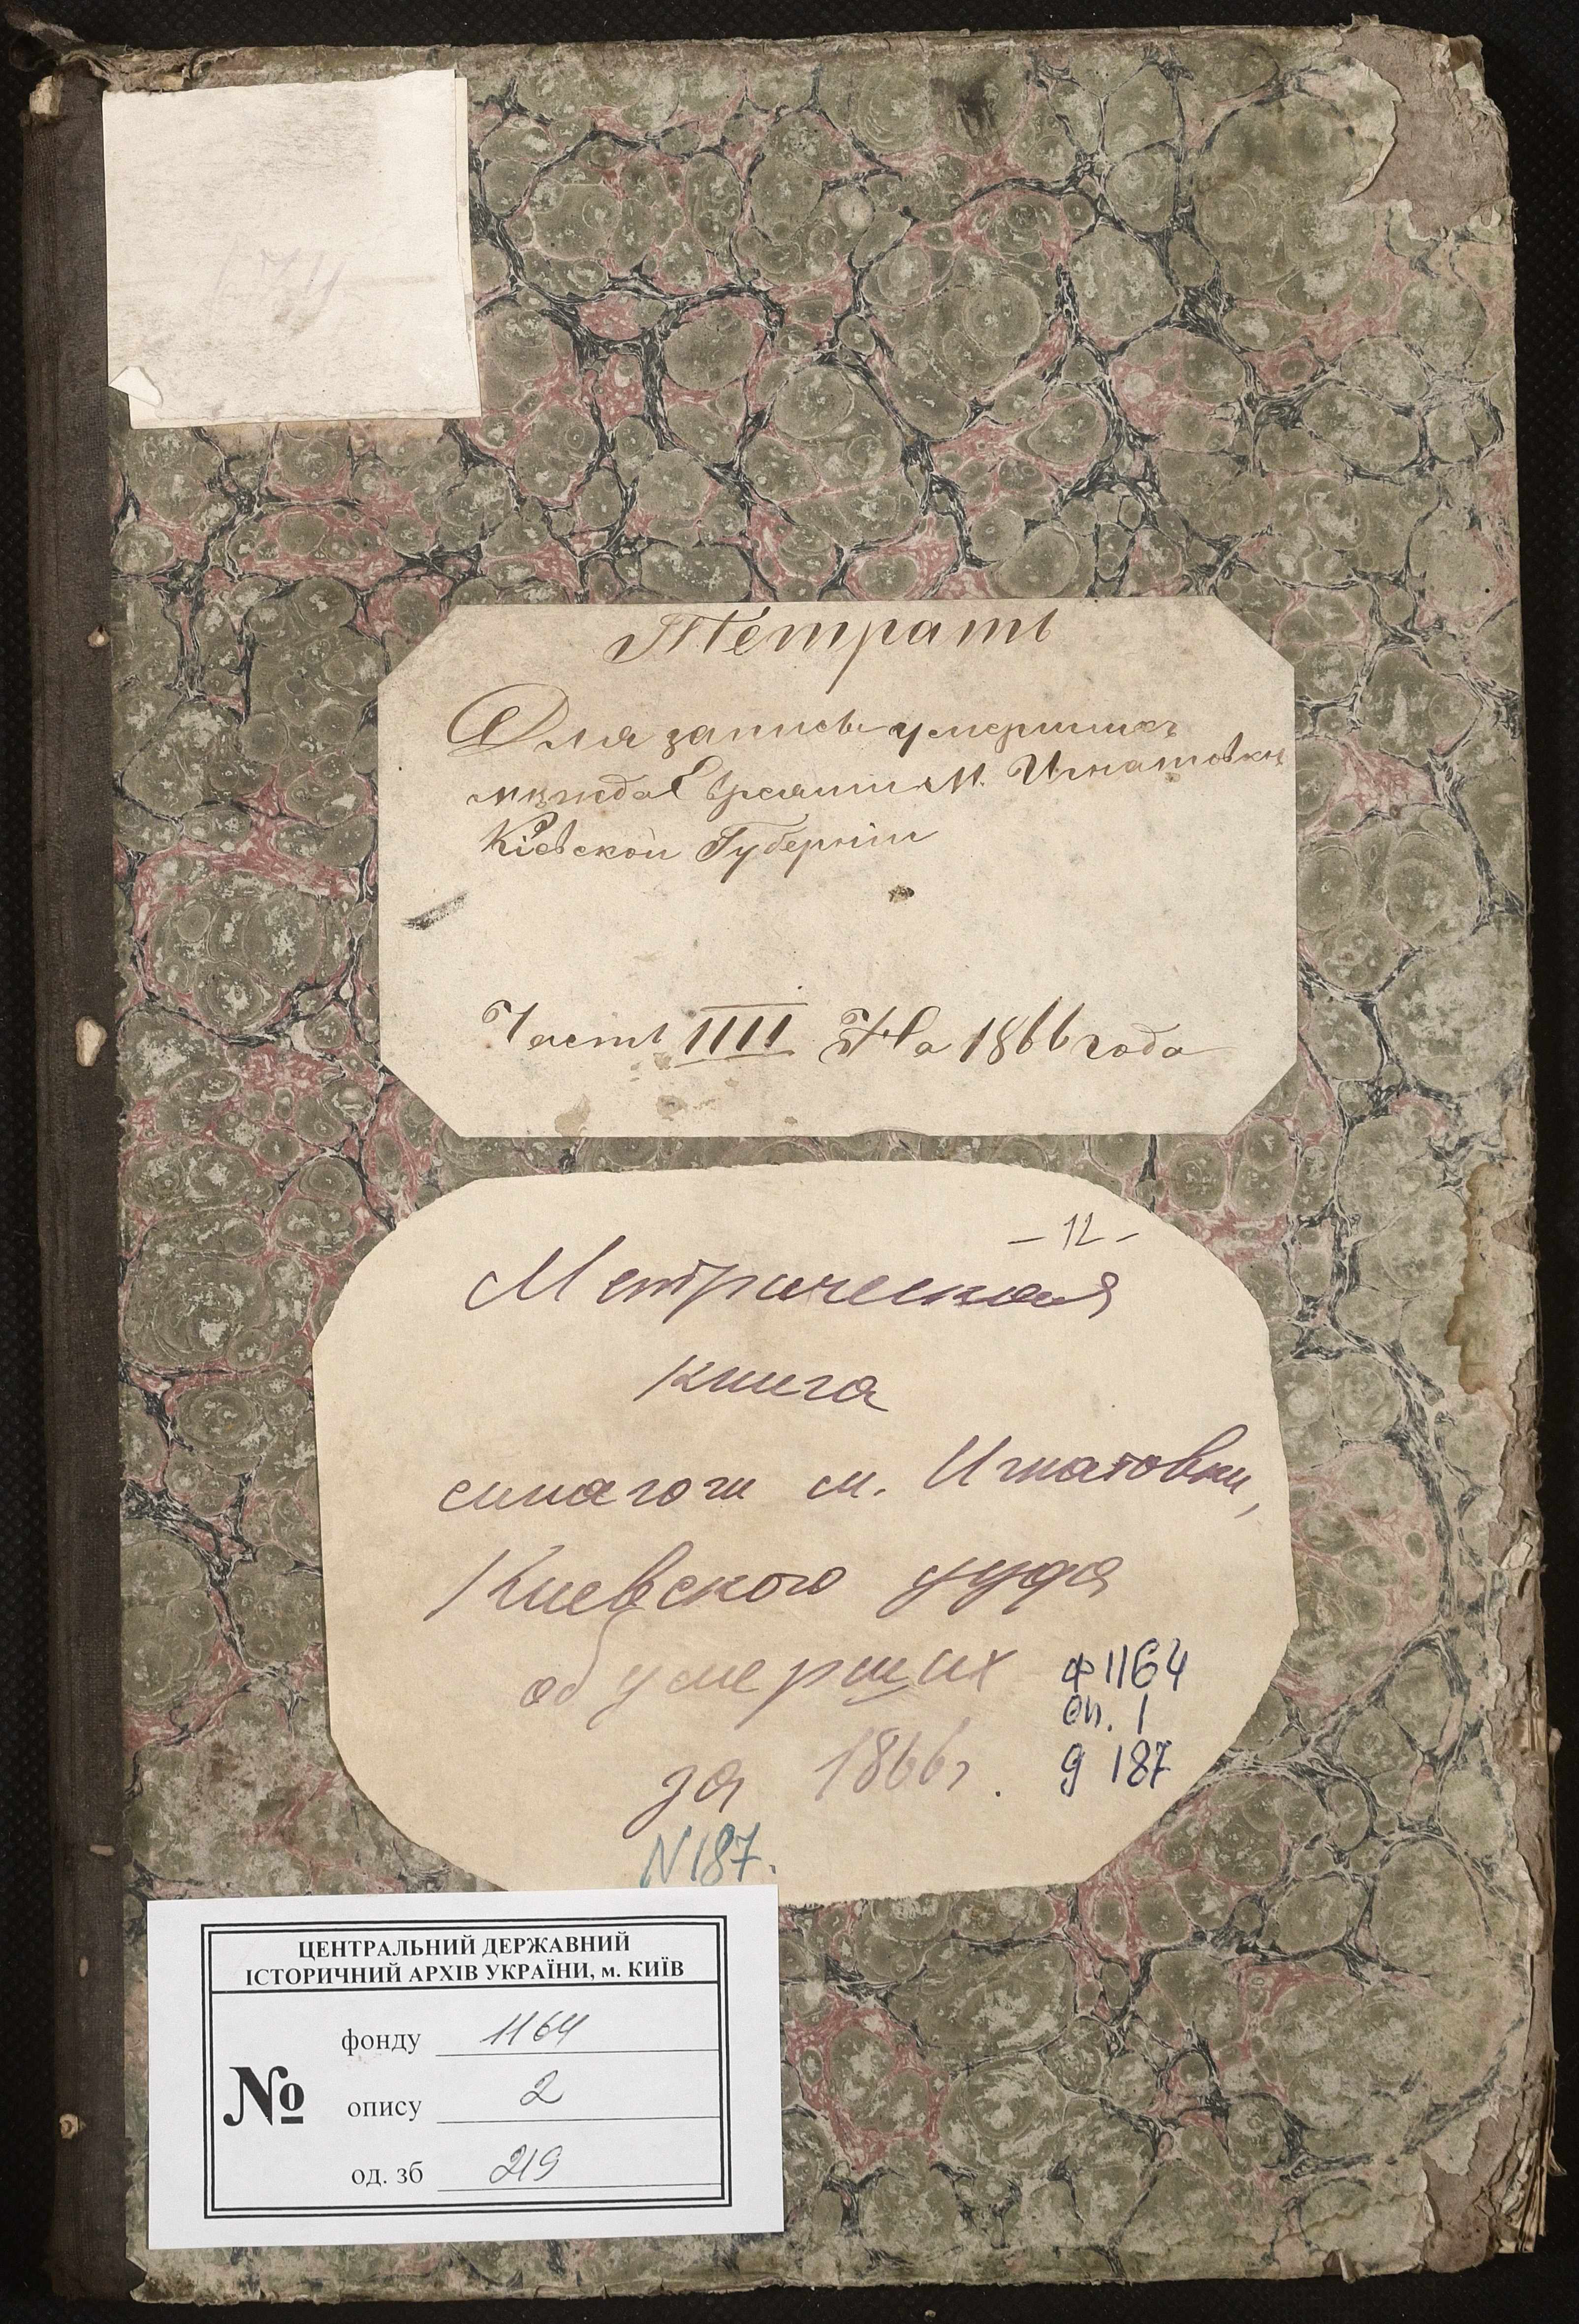 Тетрать
Для записы умерших
между Евреями М. Игнатовки
Кіевской Губерніи
Часть IIII На 1866 года
- 12 -
Метрическая
книга
синагоги м. Игнатовки,
Киевского уезда
об умерших
ф 1164
оп. 1
за 1866 г.
д 187
N 187.
ЦЕНТРАЛЬНИЙ ДЕРЖАВНИЙ
ІСТОРИЧНИЙ АРХІВ УКРАЇНИ, м. КИЇВ
№
фонду 1164
опису 2
од. зб 219